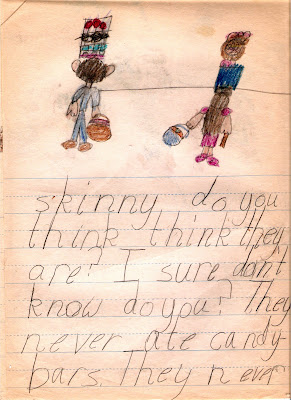 skinny do you
think think they
are? I sure don't
know do you? They
never ate candy-
bars. They never